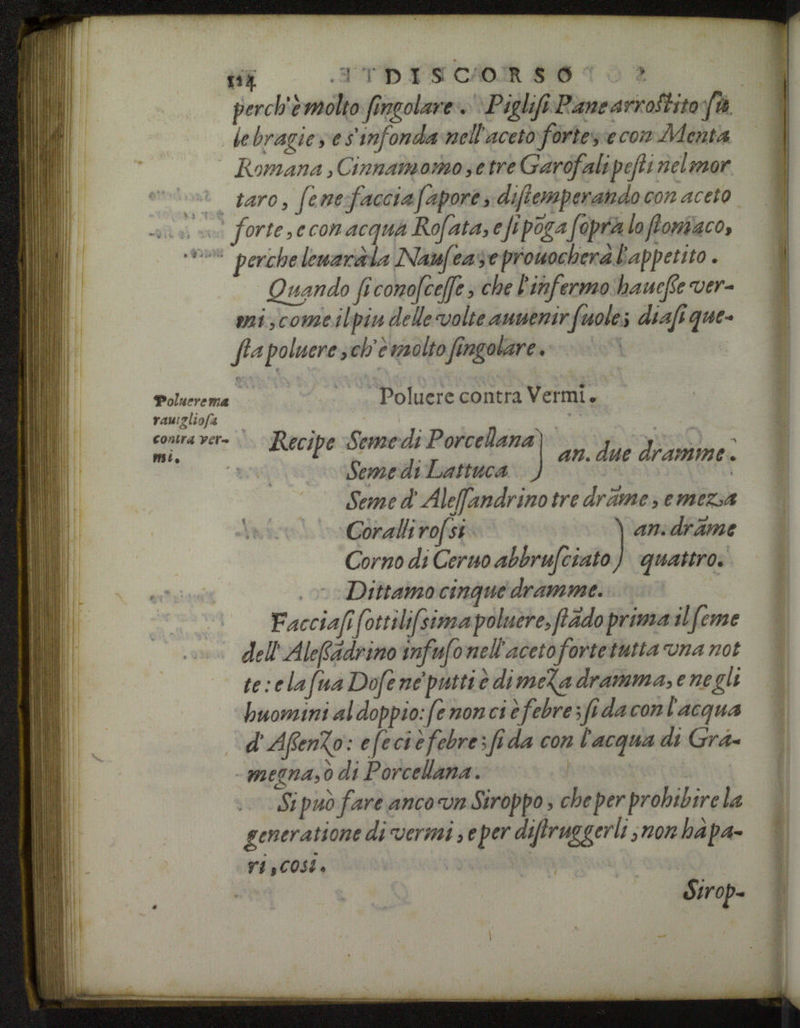 114 DISCORSO
perch'è molto ſingolare. Pigliſi Pane arroſtito ſù
le bragie, e s'infonda nell'aceto forte, e con Menta
Romana, Cinnamomo, e tre Garofali peſti nel mor
taro, ſe ne faccia ſapore, diſtemperando con aceto
forte, e con acqua Roſata, e ſi pōga ſopra lo ſtomaco,
perche leuarà la Nauſea, e prouocherà l'appetito.
Quando ſi conoſceſſe, che l'infermo haueſſe ver-
mi, come il piu delle volte auuenir ſuole; diaſi que-
ſta poluere, ch'è molto ſingolare.
Poluere contra Vermi.
Poluere ma
rauiglioſa
contra ver-
mi.
Recipe Seme di Porcellana
Seme di Lattuca } an. due dramme.
Seme d'Aleſſandrino tre drāme, e meza
Coralli roſsi
Corno di Ceruo abbruſciato } an. drāme quattro.
Dittamo cinque dramme.
Facciaſi ſottiliſsima poluere, ſtādo prima il ſeme
dell'Aleſsādrino infuſo nell'aceto forte tutta vna not
te: e la ſua Doſe ne' putti è di meza dramma, e negli
huomini al doppio: ſe non ci è febre; ſi da con l'acqua
d'Aſſenzo: e ſe ci è febre; ſi da con l'acqua di Gra-
megna, ò di Porcellana.
Si può fare anco vn Siroppo, che per prohibire la
generatione di vermi, e per diſtruggerli, non hà pa-
ri, cosi.
Sirop-